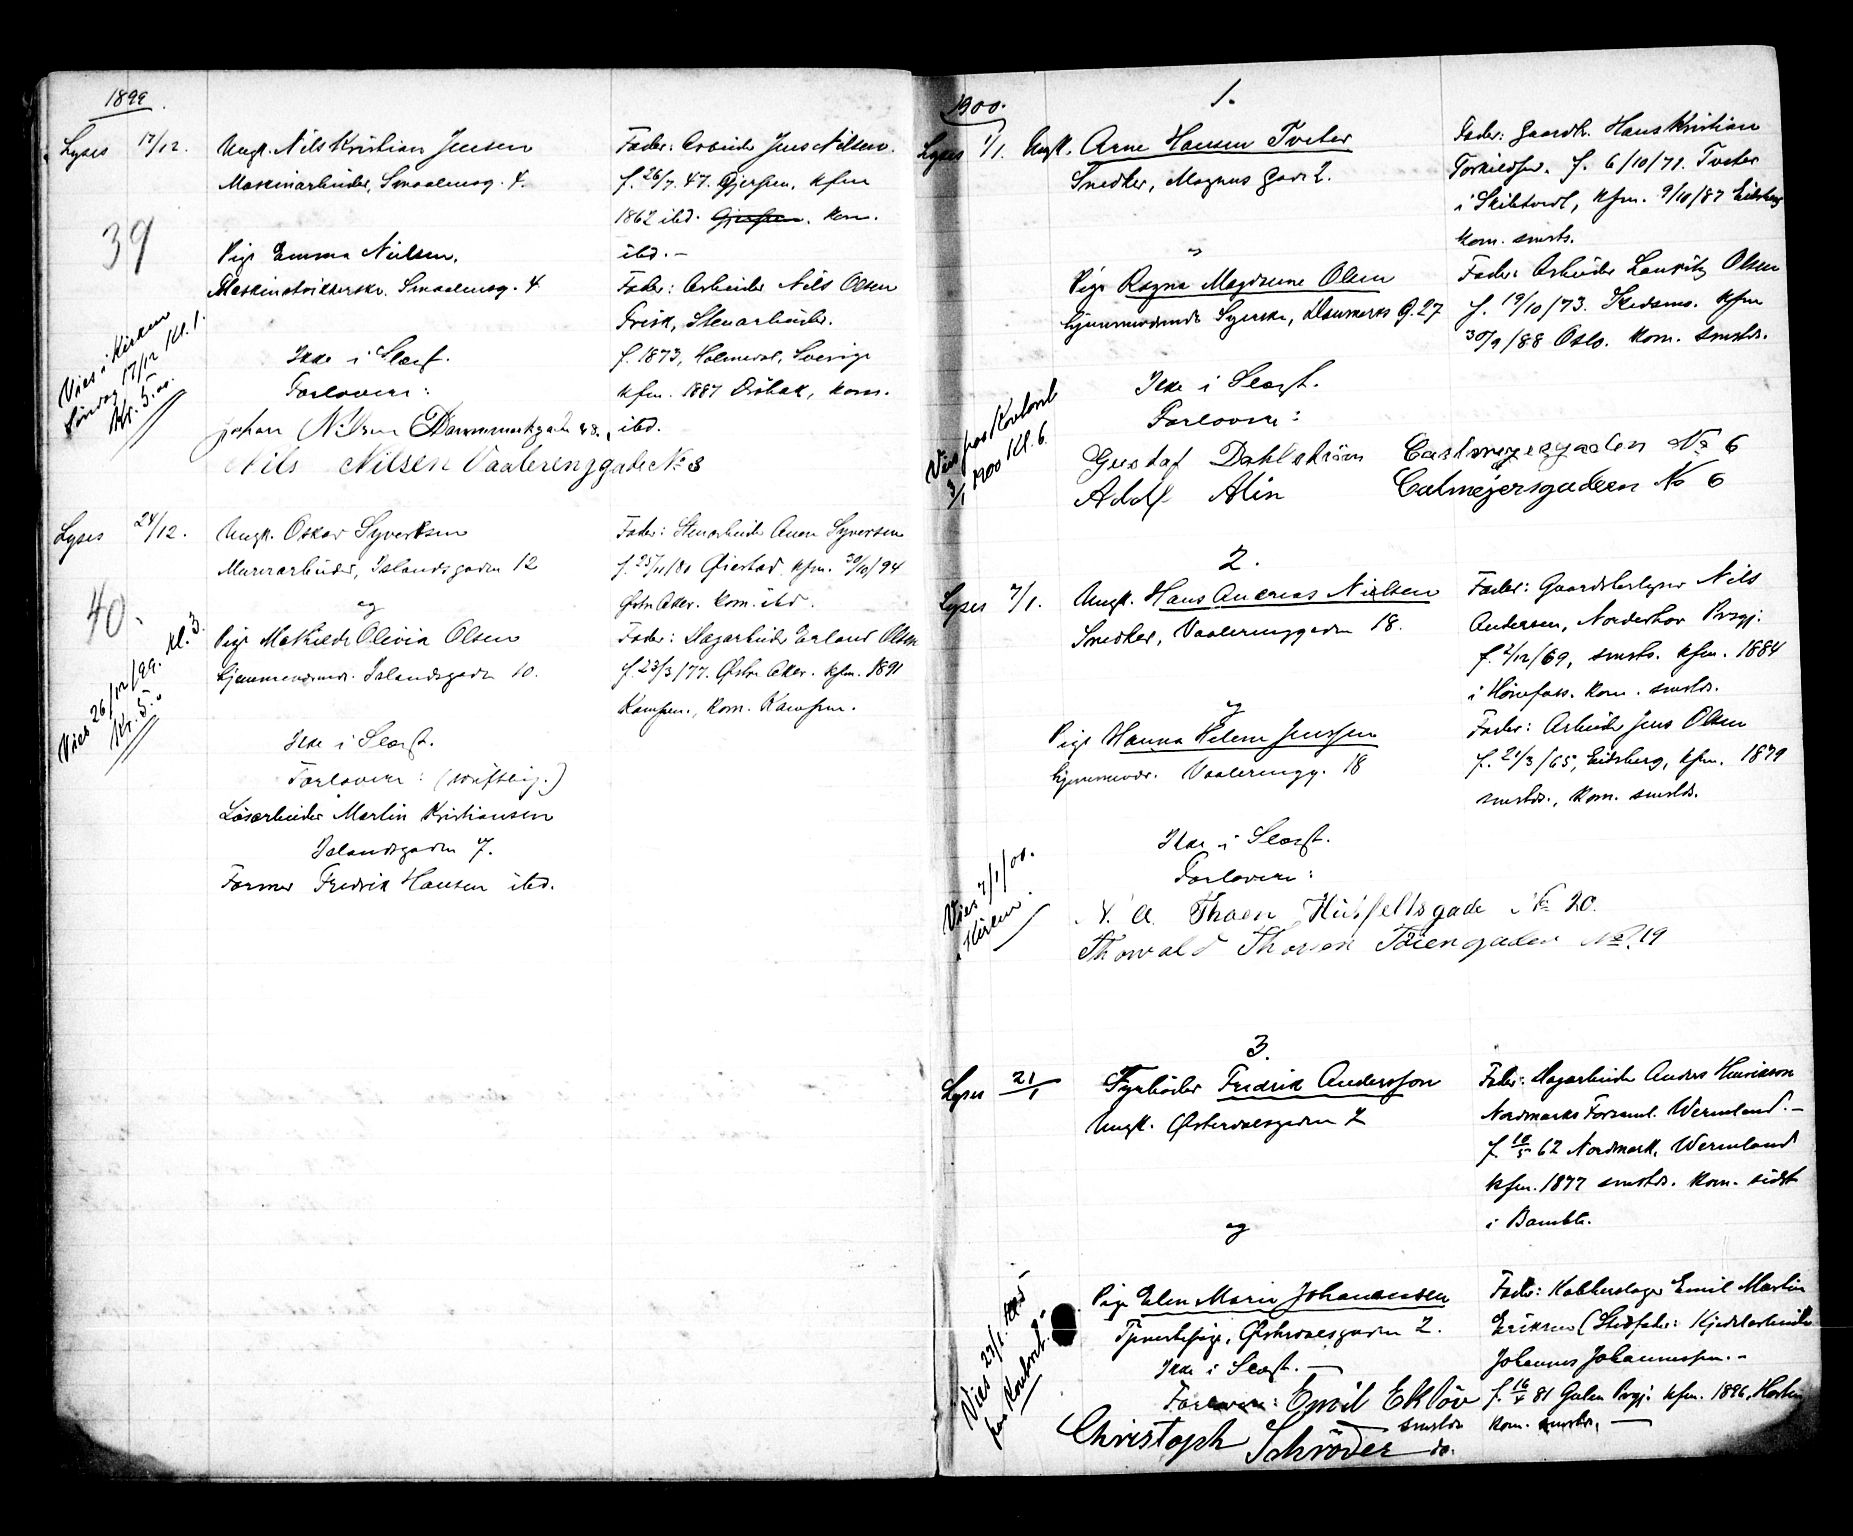 1899
Lyses 17/12.
Ungk. Nils Kristian Jensen
Maskinarbeider, Smaalensg. 4.
39
Pige Emma Nielsen,
Maskinstrikkerske. Smaalensg. 4
Vies i Kirken
Søndag 17/12 Kl. 1.
Kr. 5.00
Ikke i Slægt.
Forlovere:
Johan Nilsen Danmarkgade 48.
Nils Nilsen Vaalerenggade No 3
Fader: Arbeider Jens Nilsen.
f. 26/7. 47. Gjerpen, kfm
1862 ibd. Gjerpen. kom.
ibd. —
Fader: Arbeider Nils Olsen
Frisk, Stenarbeider.
f. 1873, Holmedal, Sverige
kfm. 1887 Drøbak, kom.
ibd.
Lyses 24/12.
Ungk. Oskar Syvertsen
Murerarbeider, Islandsgaden 12
og
40.
Pige Mathilde Olivia Olsen
hjemmeværende. Islandsgaden 10.
Vies 26/12/99. Kl. 3.
Kr. 5.00
Ikke i Slægt.
Forlovere: (skriftlig.)
Løsarbeider Martin Kristiansen
Islandsgaden 7.
Former Fredrik Hansen ibd.
Fader: Stenarbeider Anon Syversen
f. 25/11/80 Øiestad kfm. 30/10/94
Østre Aker. kom. ibd.
Fader: Dagarbeider Erland Olsen
f. 23/3/77. Østre Aker. kfm. 1891
Kampen, kom. Kampen.
1900.
1.
Lyses 1/1.
Ungk. Arne Hansen Tveter
Snedker, Magnus Gade 2.
og
Pige Ragna Magdalene Olsen
hjemmeværende Syerske, Danmarks G. 27
Ikke i Slægt.
Forlovere:
Vies paa Kontoret
3/1 1900 Kl. 6.
Gustaf Dahlström Calmeyergaden No 6
Adolf Alin Calmejersgadeen No 6
Fader: Gaardb. Hans Kristian
Torkildsen. f. 6/10/71. Tveter
i Skibtvedt, kfm. 9/10/87 Eidsberg
kom. smsts.
Fader: Arbeider Lauritz Olsen
f. 19/10/73. Skedsmo. kfm
30/9/88 Oslo. kom. smstds.
2.
Lyses 7/1.
Ungk. Hans Andreas Nielsen
Snedker, Vaalerenggaden 18.
og
Pige Hanna Helene Jenssen
hjemmevær. Vaalerengg. 18
Ikke i Slægt.
Forlovere:
Vies 7/1/00.
i Kirken.
N. A. Thoen Huitfeltsgade No 20.
Thorvald Thorsen Töiengaden No. 19
Fader: Gaardbruger Nils
Andersen, Norderhov Prgj:
f. 2/12/69, smsts. kfm. 1884
i Hønefoss. kom. smstds.
Fader: Arbeider Jens Olsen
f. 21/3/65, Eidsberg, kfm. 1879
smstds., kom. smstds.
3.
Lyses 21/1
Fyrbøder Fredrik Andersson
Ungk. Østerdalsgaden 2
og
Pige Elen Marie Johannesen
Tjenestepige, Østerdalsgaden 2.
Ikke i Slægt. —
Vies 27/1. Kl. 5
paa Kontoret.
Forlovere: Emil Eklöv
smstds
Christoph Schröder do.
Fader: Dagarbeider Anders Henrikson
Nordmarks Forsaml. Wermland. —
f. 18/5 62 Nordmark, Wermland
kfm. 1877 smstds. kom. sidst
i Bamble.
Fader: Kobberslager Emil Martin
Eriksen (Stedfader: Kjedelarbeider
Johannes Johannessen. —
f. 16/4 81 Gulen Prgj. kfm. 1896, Horten
kom. smstds. —